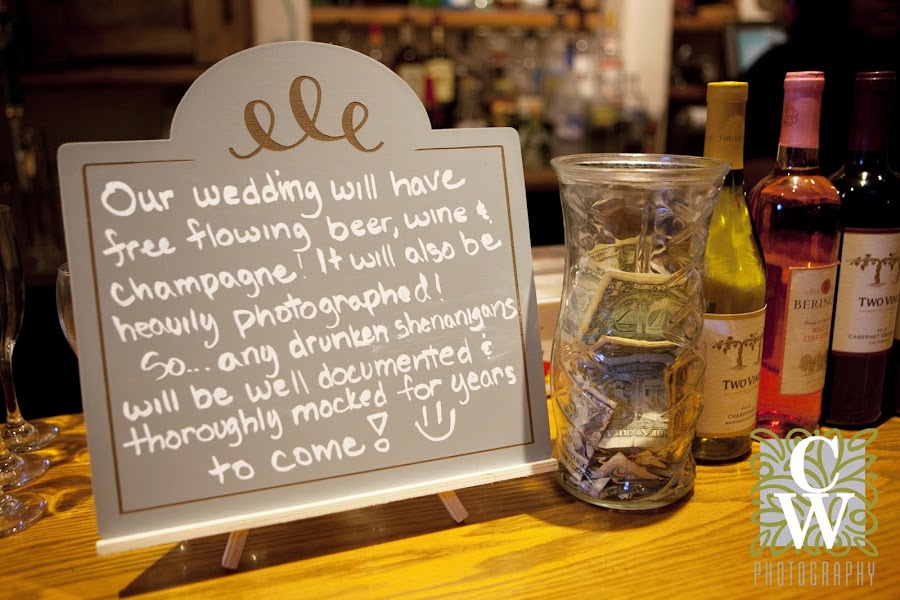 Our wedding will have
free flowing beer, wine &
champagne! It will also be
heavily photographed!
So... any drunken shenanigans
will be well documented &
thoroughly mocked for years
to come!
TWO VINES
CHARDONNAY
BERINGER
TWO VINES
CABERNET SAUVIGNON
CW
PHOTOGRAPHY